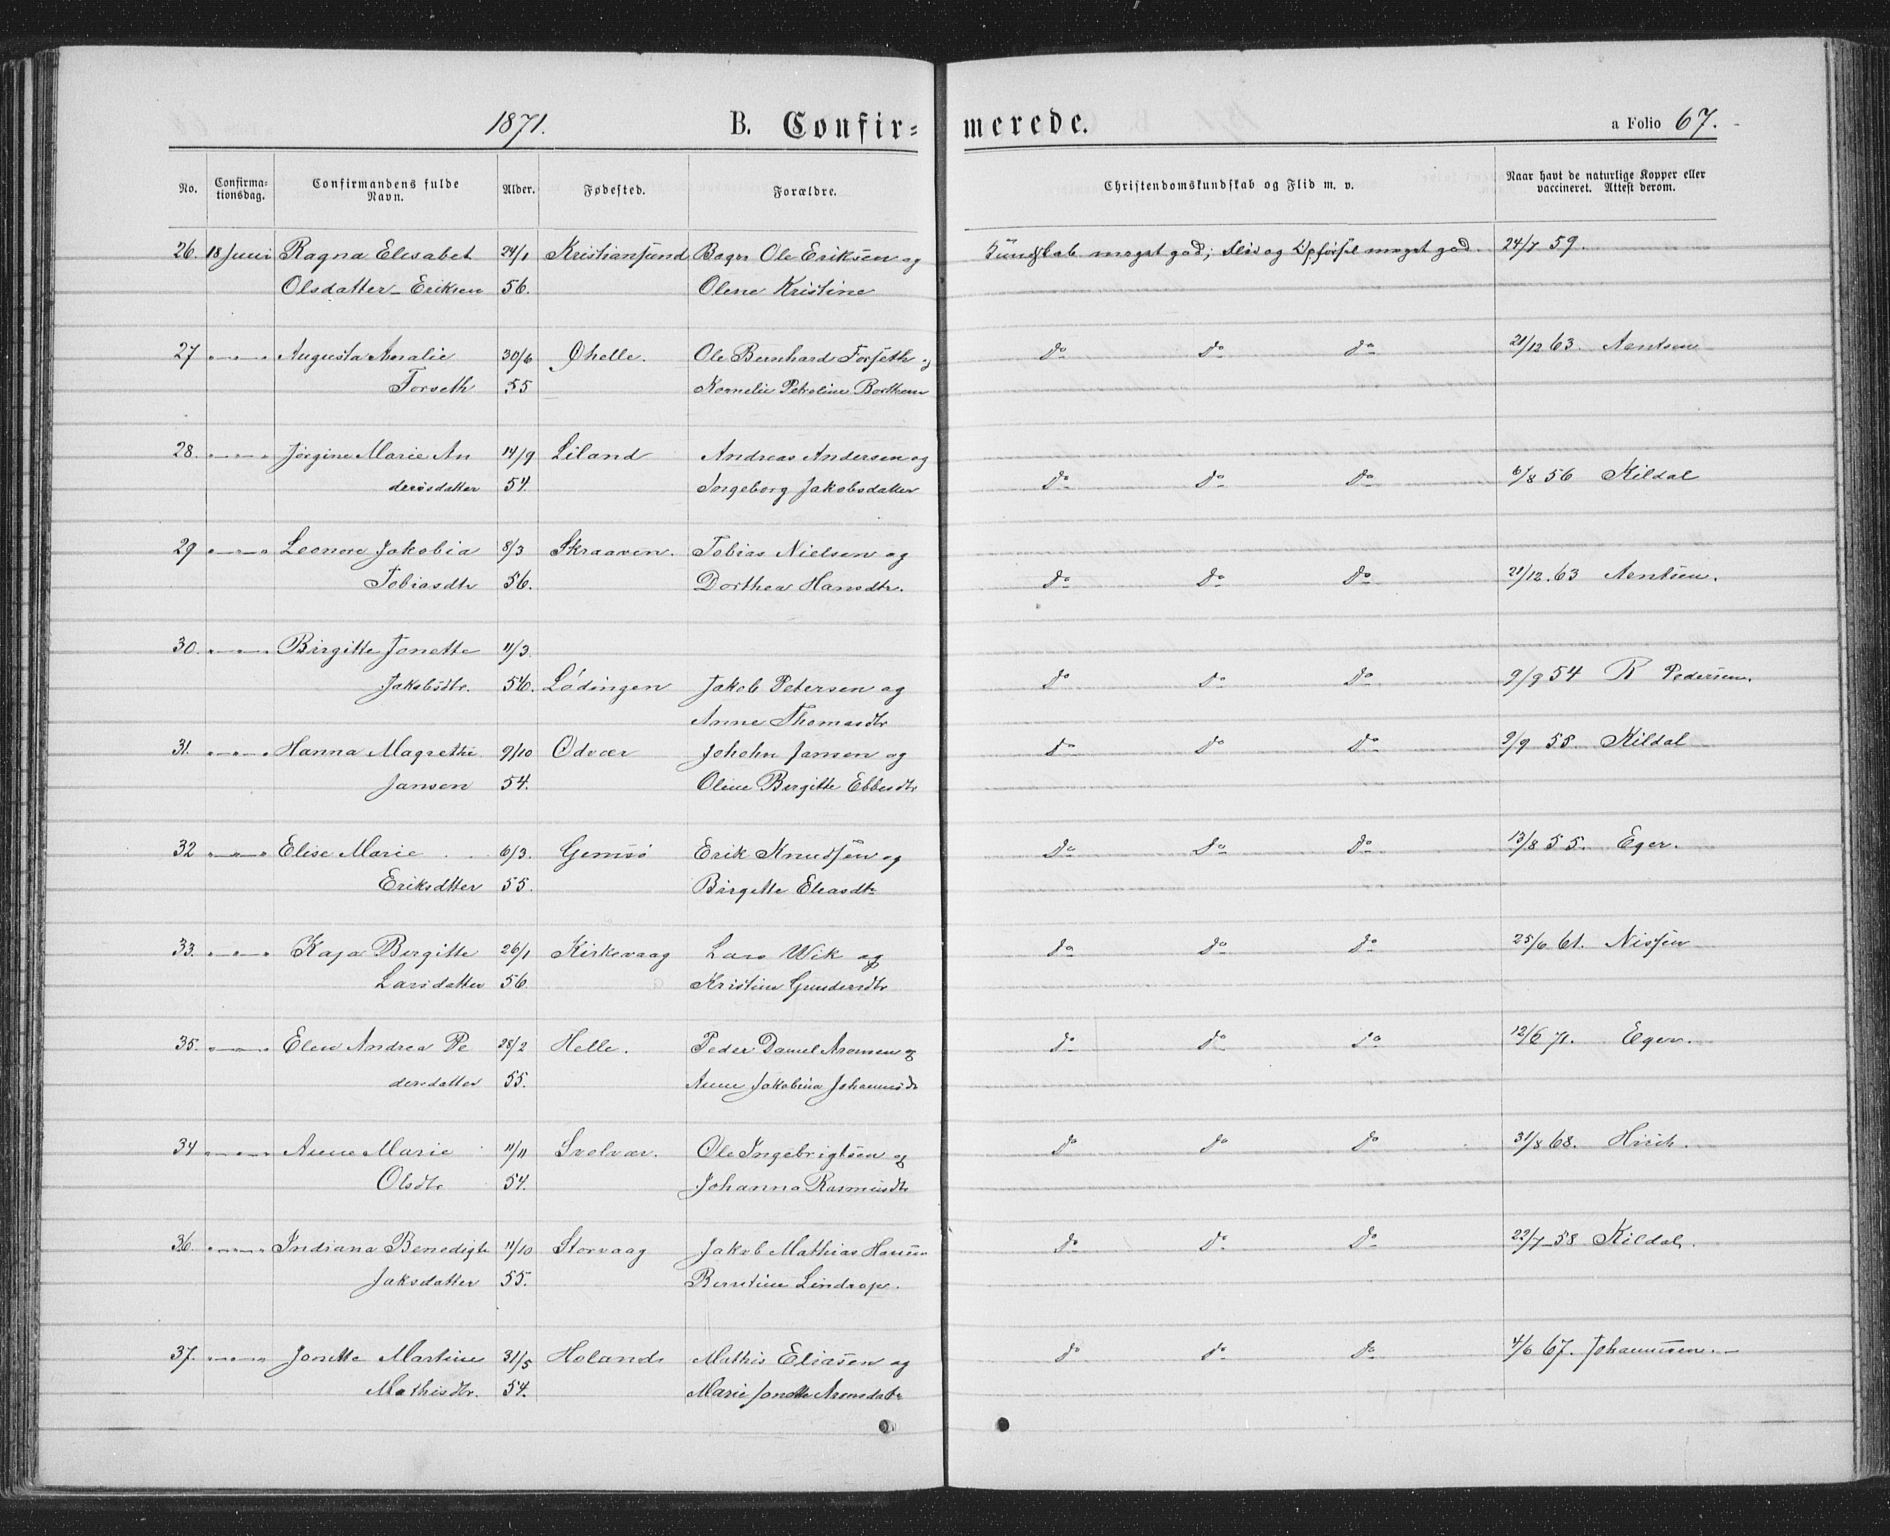 1871. B. Confir= merede. a Folio 67.
No. Confirma= tionsdag. Confirmandens fulde Navn. Alder. Fødested. Forældre. Christendomskundskab og Flid m. v. Naar havt de naturlige Kopper eller vaccineret. Attest derom.
26. 18 Juni Ragna Elisabet 24/1 Kristiansund Bager Ole Eriksen og Kundskab meget god; Flid og Opførsel meget god. 24/7 59.
Olsdatter Eriksen 56. Olene Kristine
27 " " Augusta Amalie 30/6 Øhelle. Ole Bernhard Forseth og Do Do Do 21/12 63. Aentsen
Forseth 55 Kornelie Petroline
28. " " Jørgine Marie An 14/9 Liland Andreas Andersen og
dersdatter 54. Ingeborg Jakobsdatter Do Do Do 6/8 56 Kildal
29 " " Leonore Jakobia 8/3 Skraaven. Tobias Nielsen og
Tobiasdtr 56. Dorthea Hansdtr. Do Do Do 21/12.63 Aentsen.
30. " " Birgitte Jonette 11/3
Jakobsdtr. 56. Lødingen Jakob Petersen og Do Do Do 9/9 54 R Pedersen.
Anne Thomasdtr
31. " " Hanna Magrethe 9/10 Odvær Johohn Jansen og Do Do Do 9/9 55. Kildal
Jansen 54. Oline Birgitte Ebbesdtr
32 " " Elise Marie 6/3. Gimsø Erik Knudsen og Do Do Do 13/8 55. Eger.
Eriksdtter 55. Birgitte Eliasdtr
33. " " Kaja Birgitte 26/1 Kirkevaag Lars Wik og Do Do Do 25/6 61. Nissen
Larsdatter 56. Kristine Gundersdtr
35. " " Elen Andrea Pe 28/2 Helle. Peder Daniel Aronsen og Do Do Do 12/6 71. Eger.
dersdatter 55. Anne Jakobina Johannesdtr
34 " " Anne Marie 11/11 Svolvær. Ole Ingebrigtsen og Do Do Do 31/8 68. Hirch.
Olsdtr 54. Johanna Rasmusdtr
36. " " Indiana Benedigte 11/10 Storvaag Jakob Mathias Hansen Do Do Do 22/7 58 Kildal.
Jaksdatter 55. Berntine
37. " " Jonette Martine 31/5 Holands Mathis Eliasen og Do Do Do 4/6 67. Johannesen.
Mathisdtr. 54. Marie Jonette Aronsdatr